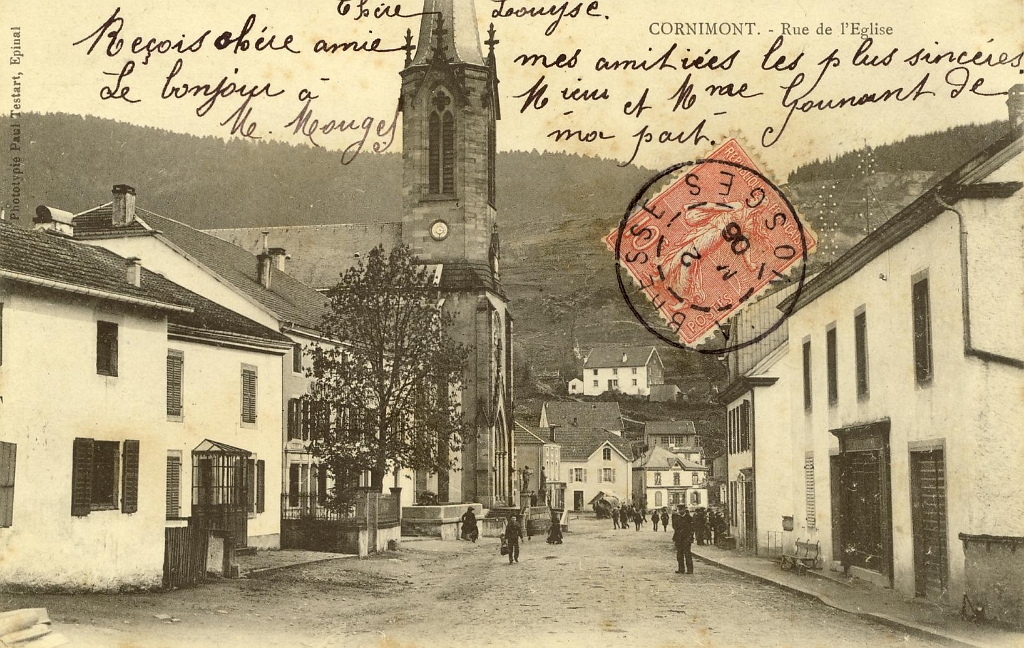 Chère Louyse.
CORNIMONT. - Rue de l'Eglise
Reçois chère amie mes amitiées les plus sincères
Le bonjour à Mieur et Mme Gounant de
M. Mouges ma part.
Phototypie Paul Testart, Epinal
LA BRESSE VOSGES
2 3 06
REPUBLIQUE
10
POSTES